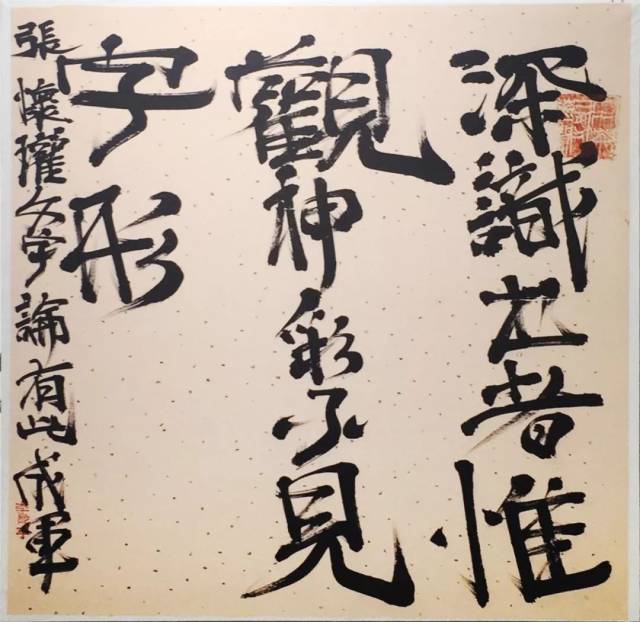 深識书者惟
觀神彩不見
字形
張懷瓘文字論有此成軍